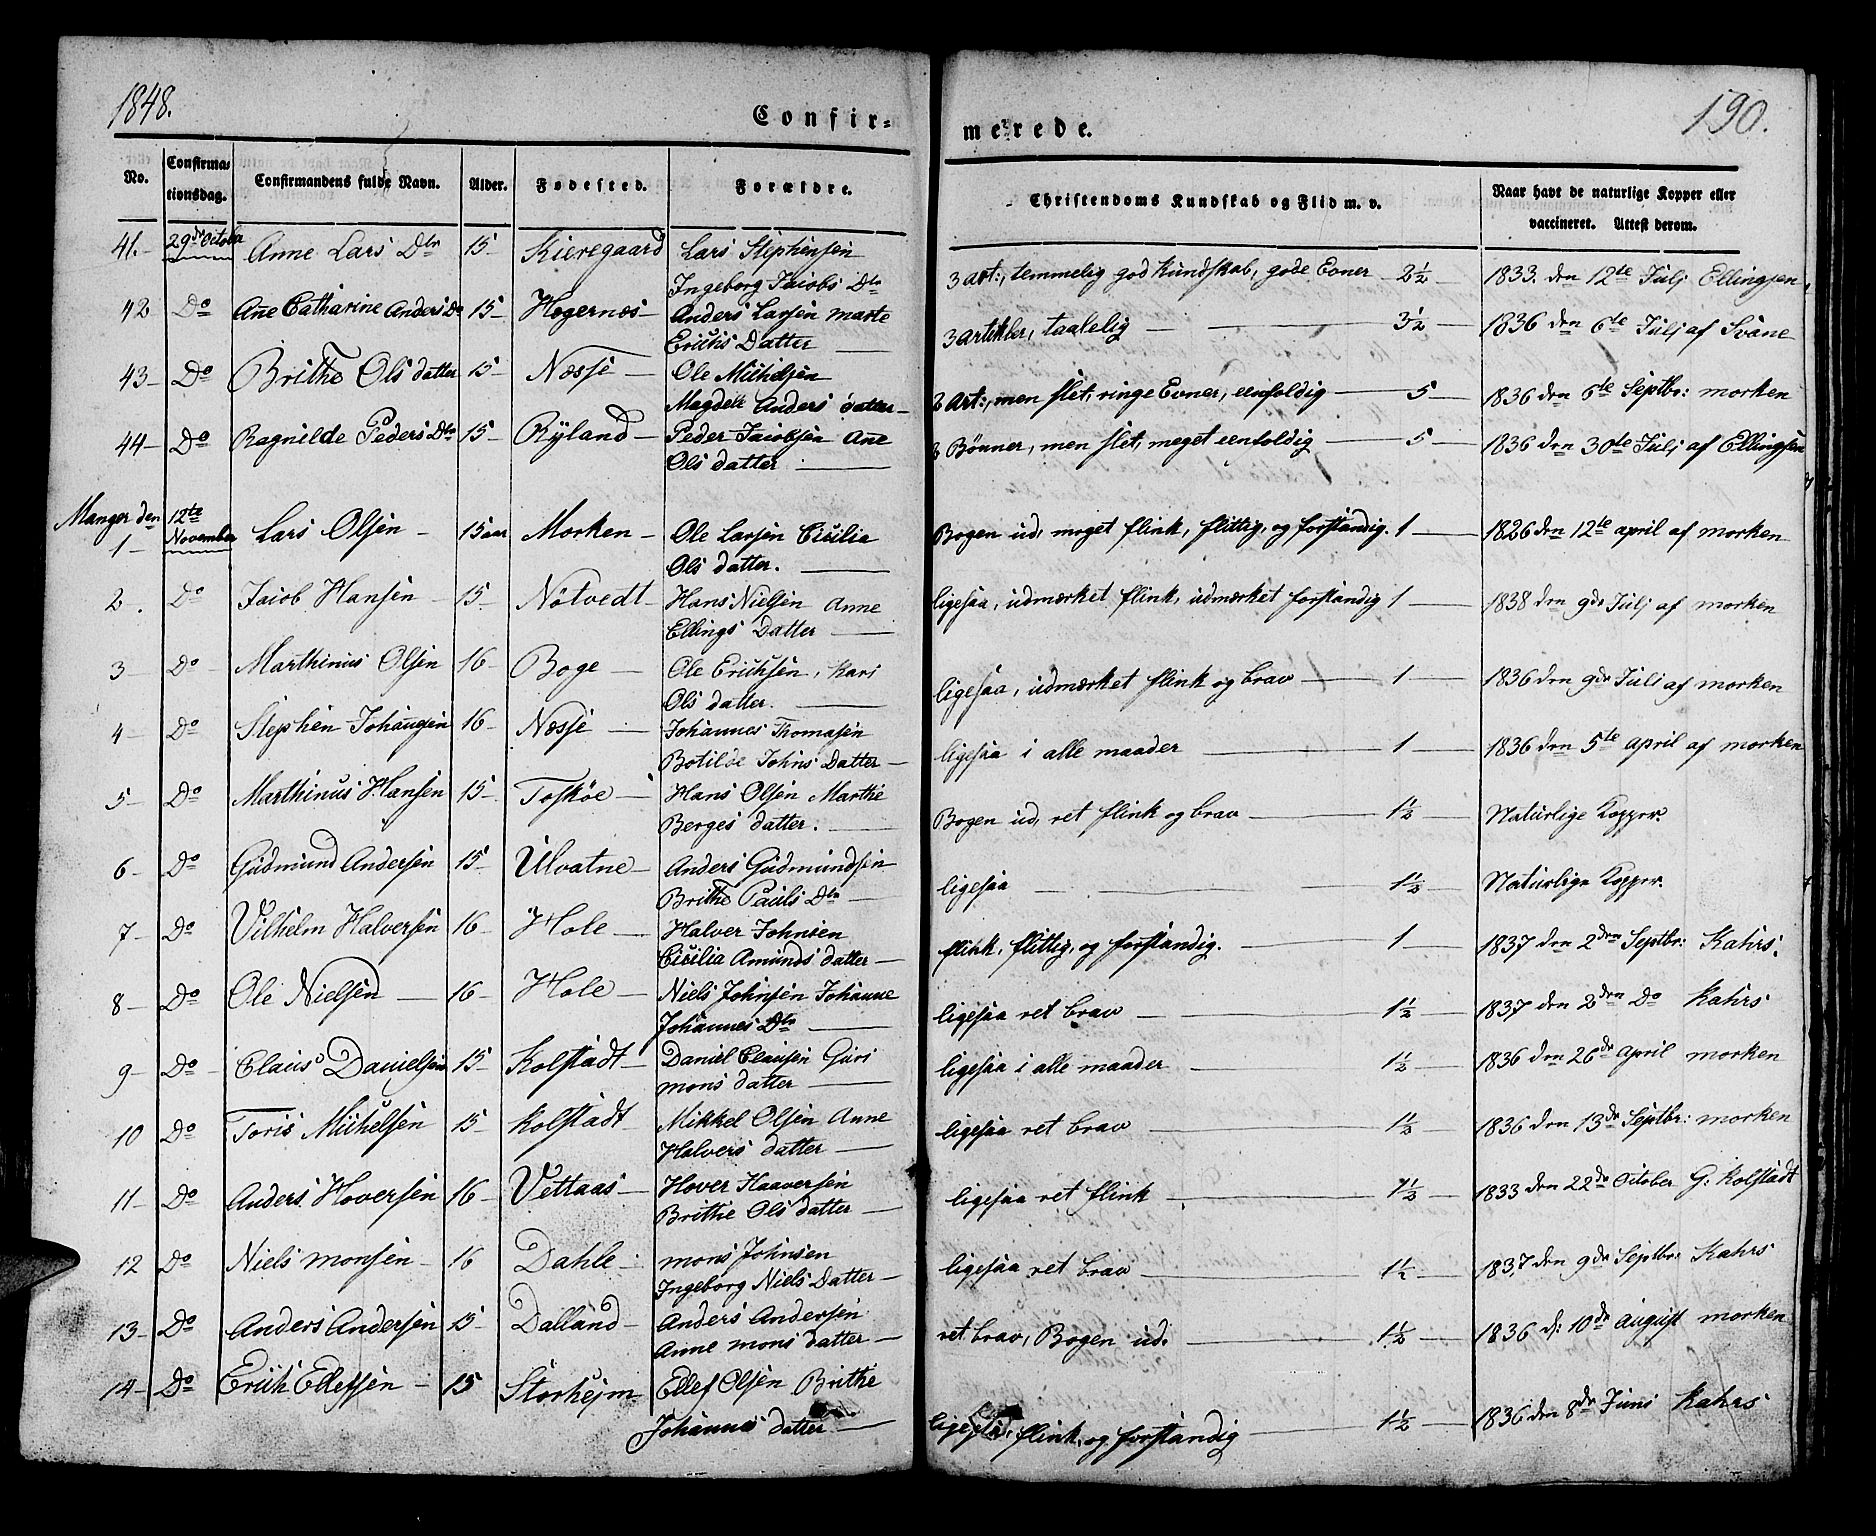 1848.
Confir-
merede.
190.
No.
Confirma-
tionsdag.
Confirmandens fulde Navn.
Alder.
Fødested.
Forældre.
Christendoms Kundskab og Flid m. v.
Naar havt de naturlige Kopper eller
vaccineret. Attest derom.
41.- 29de October Anne Lars Dtr 15- Kieregaard Lars Stephensen
Ingeborg Jacobs Dtr
3 Art:, temmelig god Kundskab, gode Evner - 2½ - 1833. den 12te Julj Ellingsen
42 Do Ane Catharine Anders Dr 15- Hegernæs- Anders Larsen Marte
Erichs Datter
3 Artikler, taalelig - 3½ - 1836 den 6te Julj af Svane
43- Do Brithe Ols datter 15- Næsse - Ole Michelsen
Magdele Anders datter-
3 Art:, men slet, ringe Evner, eenfoldig - 5 - 1836 den 6te Septbr: morken
44- Do Ragnilde Peders Dtr 15- Rÿland - Peder Jacobsen Ane
Ols datter
3 Bønner, men slet, meget eenfoldig - 5 - 1836 den 30te Julj af Ellingsen
Manger den 12te
1- November Lars Olsen - 15 aar Morken - Ole Larsen Cicilia
Ols datter.
Bogen ud, meget flink, flittig, og forstandig. 1 - 1826 den 12te april af morken
2. Do Jacob Hansen - 15- Nøtvedt- Hans Nielsen Anne
Ellings Datter -
ligesaa, udmærket flink, udmærket forstandig 1 - 1838 den 9de Julj af morken
3- Do- Marthinus Olsen 16- Boge - Ole Erichsen, Kari
Ols datter.
ligesaa, udmærket flink og brav - 1 - 1836 den 9de Juli af morken
4- Do Stephen Johannesen 16- Næsse - Johannes Thomasen
Botilde Johns Datter -
ligesaa i alle maader - 1 - 1836 den 5te april af morken
5- Do Marthinus Hansen 15- Toskøe - Hans Olsen Marthe
Berges datter.
Bogen ud, ret flink og brav - 1½ - Naturlige Kopper.
6- Do Gudmund Andersen 15- Ulvatne - Anders Gudmundsen
Brithe Pauls Dtr -
ligesaa - 1½ - Naturlige Kopper.
7- Do Vilhelm Halversen 16- Hole - Halver Johnsen
Cicilia Amunds datter -
flink, flittig, og forstandig. - 1 - 1837 den 2den Septbr: Kahrs.
8- Do Ole Nielsen - 16- Hole - Niels Johnsen Johanne
Johannes Dtr -
ligesaa ret brav - 1½ - 1837 den 2den Do Kahrs
9- Do- Claus Danielsen 15- Kolstadt - Daniel Clausen Guri
mons datter -
ligesaa i alle maader - 1½ - 1836 den 26de april morken
10 Do Toris Michelsen 15- Kolstadt Mikkel Olsen Anne
Halvers datter -
ligesaa ret brav - 1½ - 1836 den 13de Septbr: morken
11- Do Anders Hoversen 16- Vettaas - Hover Haaversen
Brithe Ols datter -
ligesaa ret flink - 1½ - 1833 den 22de October G: Kolstadt
12 Do Niels monsen - 16 Dahle - mons Johnsen
Ingeborg Niels Datter -
ligesaa ret brav - 1½ - 1837 den 9de Septbr: Kahrs
13- Do Anders Andersen 15- Dalland - Anders Andersen
Anne mons datter -
ret brav, Bogen ud. - 1½ - 1836 d: 10de August morken
14- Do Erich Ellefsen - 15 Storhejm Ellef Olsen Brithe
Johannes datter -
ligesaa, flink, og forstandig - 1½ - 1836 den 8de Juni Kahrs